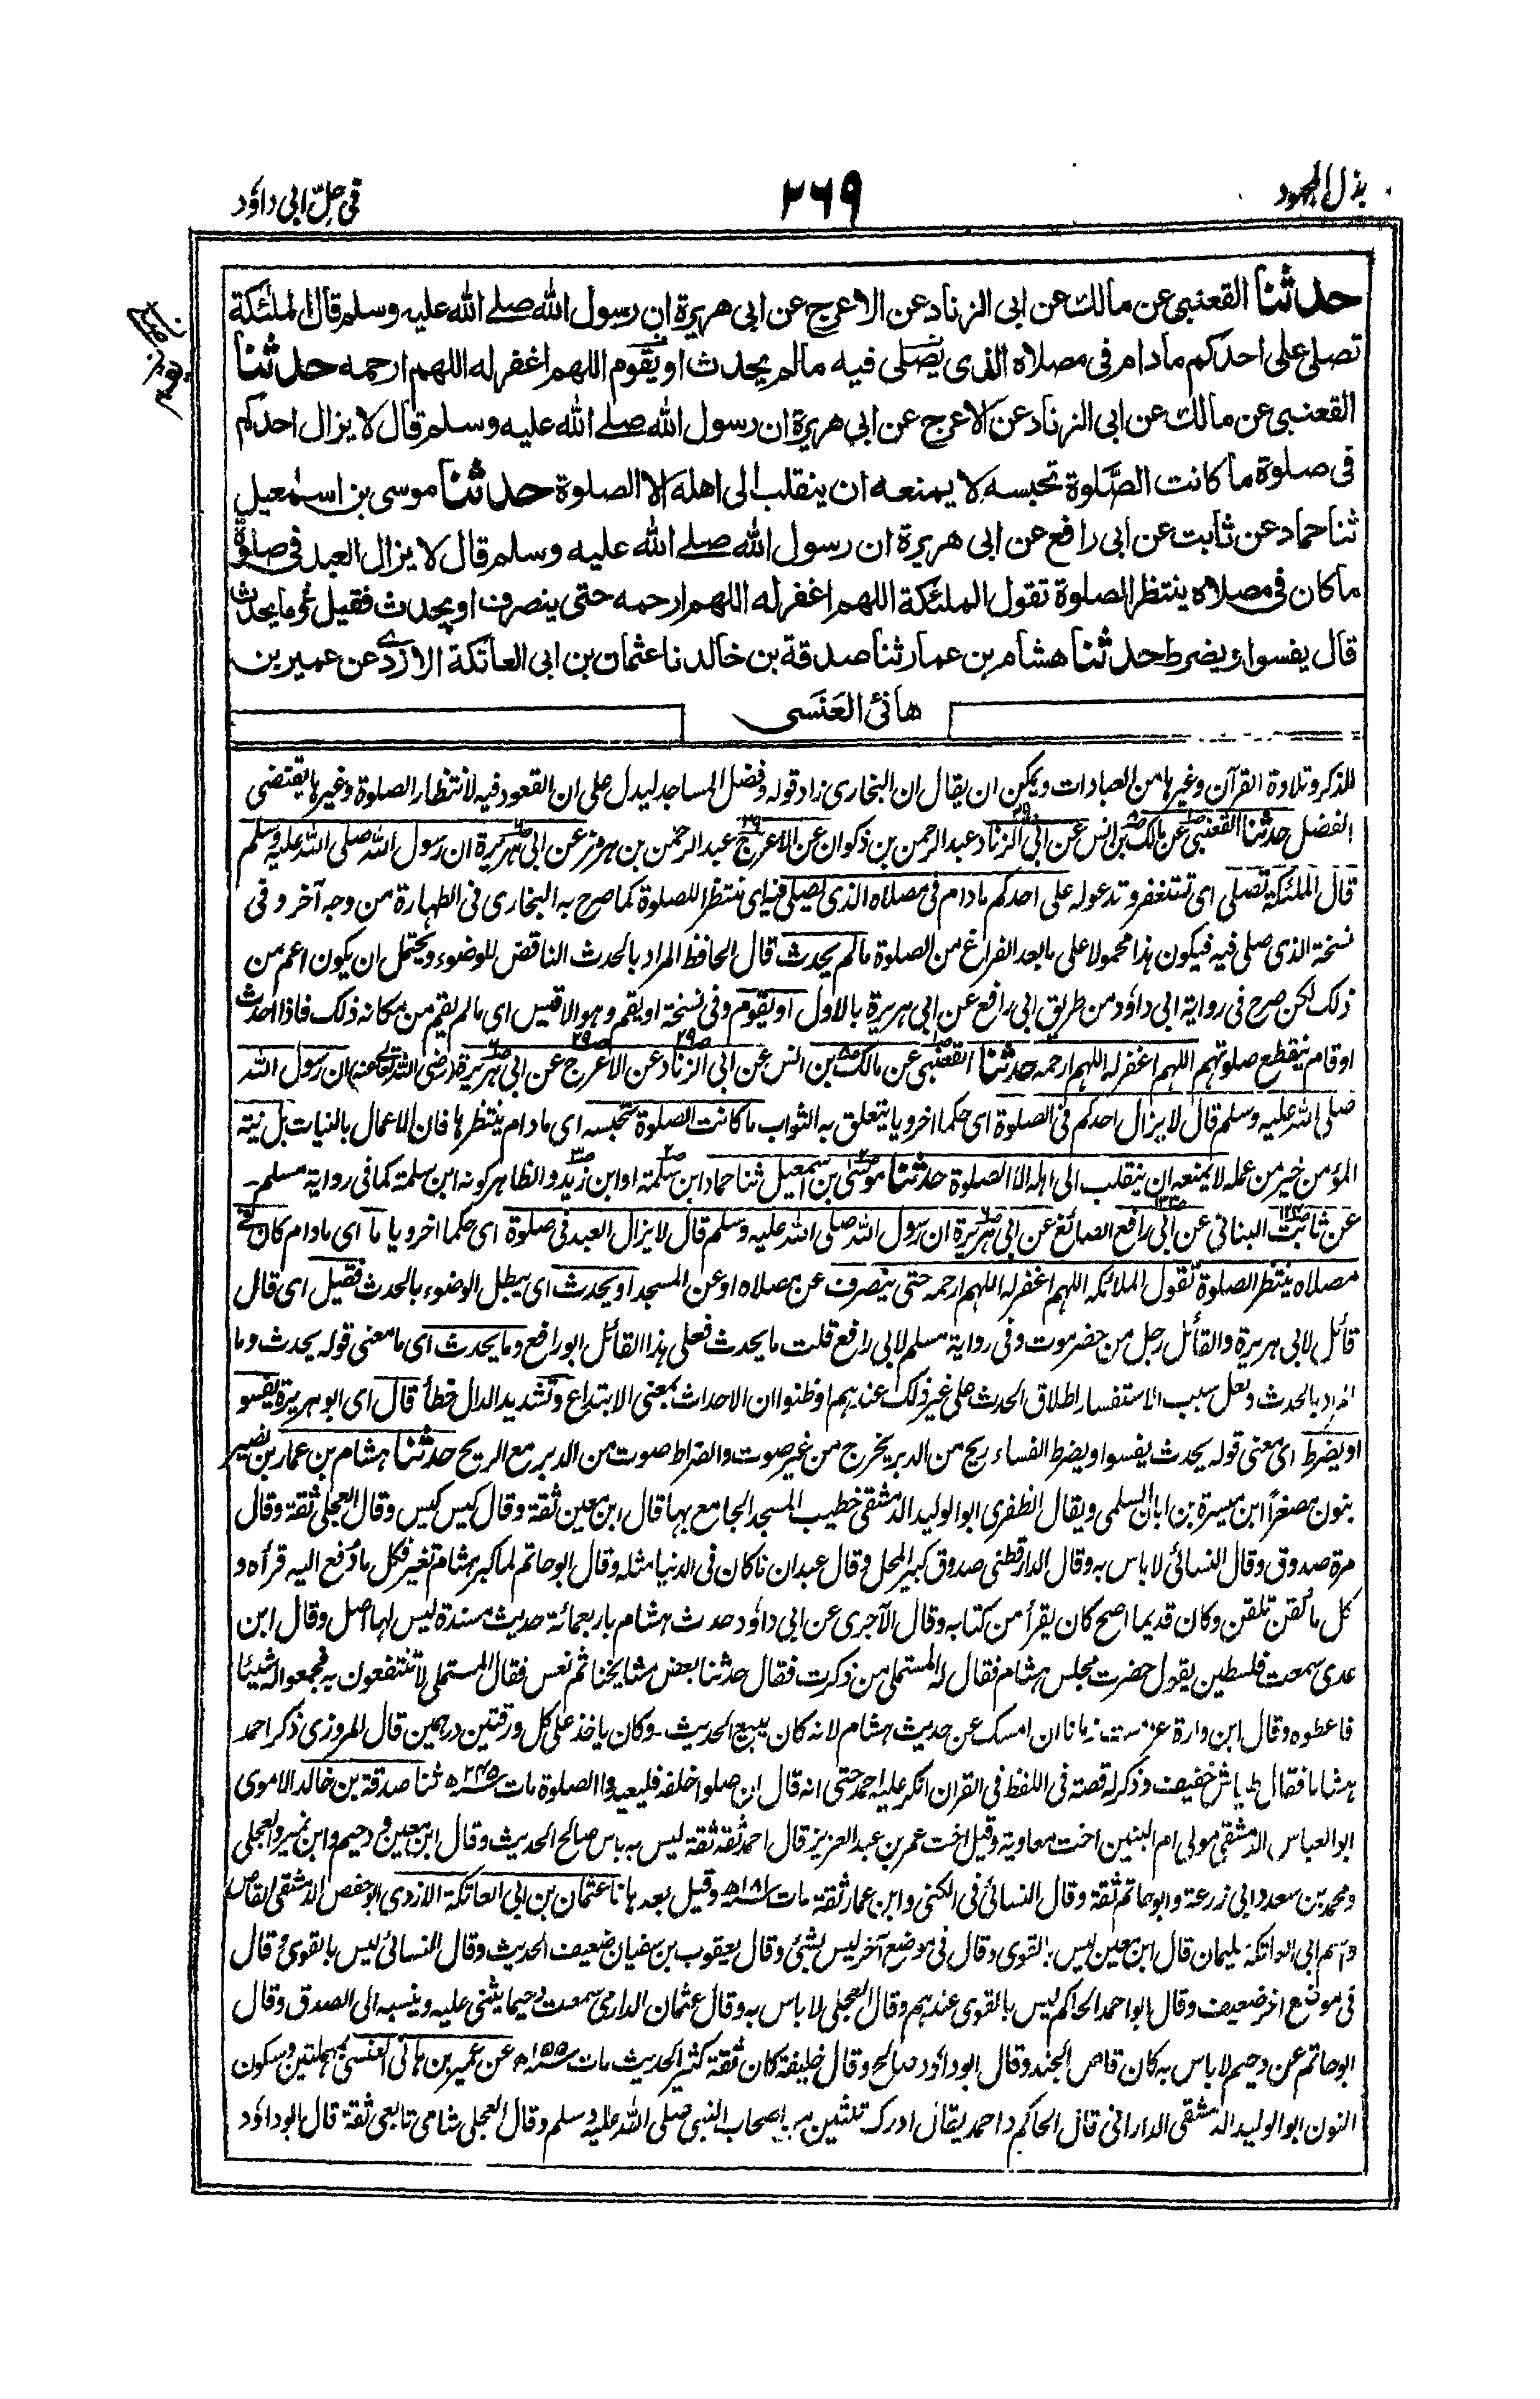 بذل المجهود
٢٦٩
فی حلّ ابی داؤد
حدثنا القعنبی عن مالك عن ابی الزناد عن الاعرج عن ابی هريرة ان رسول الله صلے الله عليه وسلم قال الملئكة
تصلی علی احدكم مادام فی مصلاه الذی يصلی فيه مالم يحدث او يقوم اللهم اغفر له اللهم ارحمه حدثنا
القعنبی عن مالك عن ابی الزناد عن الاعرج عن ابی هريرة ان رسول الله صلے الله عليه وسلم قال لا يزال احدكم
فی صلوة ما كانت الصَّلوة تحبسه لا يمنعه ان ينقلب الی اهله الا الصلوة حدثنا موسی بن اسمٰعيل
ثنا حماد عن ثابت عن ابی رافع عن ابی هريرة ان رسول الله صلے الله عليه وسلم قال لا يزال العبد فی صلوة
ما كان فی مصلاه ينتظر الصلوة تقول الملئكة اللهم اغفر له اللهم ارحمه حتی ينصرف او يحدث فقيل وما يحدث
قال يفسوا ويضرط حدثنا هشام بن عمار ثنا صدقة بن خالد نا عثمان بن ابی العاتكة الازدی عن عمير بن
هانئ العَنَسی
للذكر وتلاوة القرآن وغيرها من العبادات ويمكن ان يقال ان البخاری زاد قوله وفضل المساجد ليدل علی ان القعود فيه لانتظار الصلوة وغيرها يقتضی
الفضل حدثنا القعنبی عن مالك بن انس عن ابی الزناد عبد الرحمن بن ذكوان عن الاعرج عبد الرحمٰن بن هرمز عن ابی هريرة ان رسول الله صلی الله عليه وسلم
قال الملئكة تصلی ای تستغفر وتدعو له علی احدكم مادام فی مصلاه الذی يصلی فيه ای ينتظر للصلوة كما صرح به البخاری فی الطهارة من وجه آخر وفی
نسخة الذی صلی فيه فيكون هذا محمولا علی ما بعد الفراغ من الصلوة مالم يحدث قال الحافظ المراد بالحدث الناقض للوضوء ويحتمل ان يكون اعم من
ذلك لكن صرح فی رواية ابی داؤد من طريق ابی رافع عن ابی هريرة بالاول او يقوم وفی نسخة او يقم وهو الاقيس ای مالم يقم من مكانه ذلك فاذا احدث
او قام ينقطع صلوتهم اللهم اغفر له اللهم ارحمه حدثنا القعنبی عن مالك بن انس عن ابی الزناد عن الاعرج عن ابی هريرة (رضی الله تعالی عنه) ان رسول الله
صلی الله عليه وسلم قال لا يزال احدكم فی الصلوة ای حكما اخرويا يتعلق به الثواب ما كانت الصلوة تحبسه ای مادام ينتظرها فان الاعمال بالنيات بل نية
المؤمن خير من عمله لا يمنعه ان ينقلب الی اهله الا الصلوة حدثنا موسٰی بن اسمعيل ثنا حماد ابن سلمة او ابن زيد والظاهر كونه ابن سلمة كما فی رواية مسلم
عن ثابت البنانی عن ابی رافع الصائغ عن ابی هريرة ان رسول الله صلی الله عليه وسلم قال لا يزال العبد فی صلوة ای حكما اخرويا ما ای مادام كان فی
مصلاه ينتظر الصلوة تقول الملائكة اللهم اغفر له اللهم ارحمه حتی ينصرف عن مصلاه او عن المسجد او يحدث ای يبطل الوضوء بالحدث فقيل ای قال
قائل لابی هريرة والقائل رجل من حضرموت وفی رواية مسلم لابی رافع قلت ما يحدث فعلی هذا القائل ابو رافع وما يحدث ای ما معنی قوله يحدث وما
المراد بالحدث ولعل سبب الاستفسار اطلاق الحدث علی غير ذلك عندهم او ظنوا ان الاحداث بمعنی الابتداع وتشديد الدال خطأ قال ای ابو هريرة يفسو
او يضرط ای معنی قوله يحدث يفسوا ويضرط الفساء ريح من الدبر يخرج من غير صوت والضراط صوت من الدبر مع الريح حدثنا هشام بن عمار بن نصير
بنون مصغراً ابن ميسرة بن ابان السلمی ويقال الظفری ابو الوليد الدمشقی خطيب المسجد الجامع بها قال ابن معين ثقة وقال كيس كيس وقال العجلی ثقة وقال
مرة صدوق وقال النسائی لا باس به وقال الدارقطنی صدوق كبير المحل وقال عبدان ما كان فی الدنيا مثله وقال ابو حاتم لما كبر هشام تغير فكل ما دُفع اليه قرأه و
كل ما لُقن تلقن وكان قديما اصح كان يقرأ من كتابه وقال الآجری عن ابی داؤد حدث هشام باربعمائة حديث مسندة ليس لها اصل وقال ابن
عدی سمعت فلسطين يقول حضرت مجلس هشام فقال له المستملی من ذكرت فقال حدثنا بعض مشايخنا ثم نعس فقال المستملی لا تنتفعون به فجمعوا له شيئا
فاعطوه وقال ابن وارة عزمت زمانا ان امسك عن حديث هشام لانه كان يبيع الحديث - وكان ياخذ علی كل ورقتين درهمين قال المروزی ذكر احمد
هشاما فقال طياش خفيف وذكر له قصة فی اللفظ فی القران انكر عليه احمد حتی انه قال ان صلوا خلفه فليعيدوا الصلوة مات سنة ٢٤٥ه‍ ثنا صدقة بن خالد الاموی
ابو العباس الدمشقی مولی ام البنين اخت معاوية وقيل اخت عمر بن عبد العزيز قال احمد ثقة ثقة ليس به باس صالح الحديث وقال ابن معين ودحيم وابن نمير والعجلی
ومحمد بن سعد وابی زرعة وابو حاتم ثقة وقال النسائی فی الكنی وابن عمار ثقة مات سنة ١٨١ه‍ وقيل بعدها نا عثمان بن ابی العاتكة الازدی ابو حفص الدمشقی القاص
واسم ابی العاتكة سليمان قال ابن معين ليس بالقوی وقال فی موضع آخر ليس بشئ وقال يعقوب بن سفيان ضعيف الحديث وقال النسائی ليس بالقوی وقال
فی موضع اخر ضعيف وقال ابو احمد الحاكم ليس بالقوی عندهم وقال العجلی لا باس به وقال عثمان الدارمی سمعت دحيما يثنی عليه وينسبه الی الصدق وقال
ابو حاتم عن دحيم لا باس به كان قاص الجند وقال ابو داؤد صالح وقال خليفة كان ثقة كثير الحديث مات سنة ١٥٥ه‍ عن عمير بن هانی العنسی بمهملتين وسكون
النون ابو الوليد الدمشقی الدارانی قال الحاكم واحمد يقال ادرك ثلثين من اصحاب النبی صلی الله عليه وسلم وقال العجلی شامی تابعی ثقة قال ابو داؤد